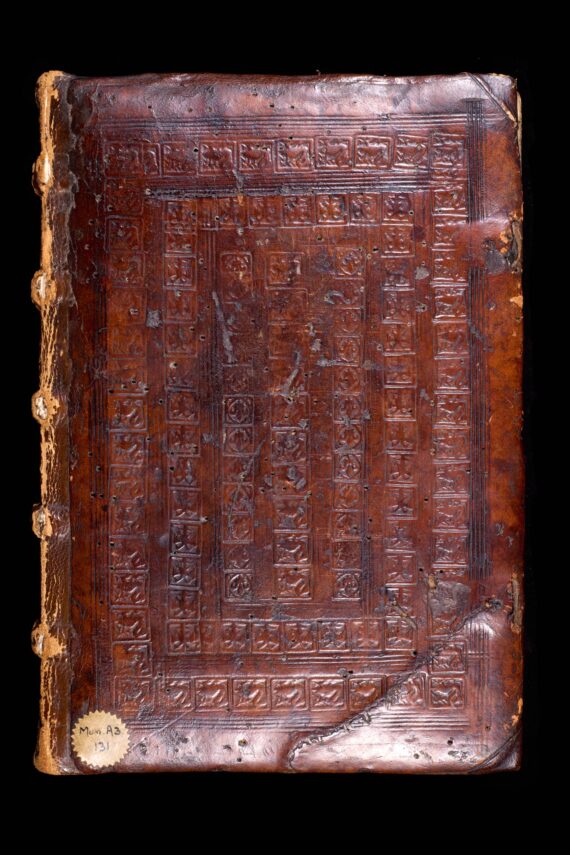 Mun. A3
131